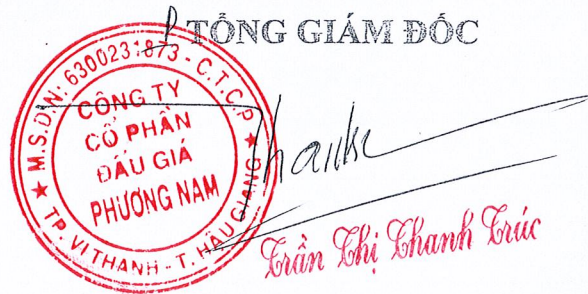 P TỔNG GIÁM ĐỐC
M.S.D.N: 6300231873 - C.T.C.P
CÔNG TY
CỔ PHẦN
ĐẤU GIÁ
PHƯƠNG NAM
TP. VỊ THANH - T. HẬU GIANG
Thanh
Trần Thị Thanh Trúc